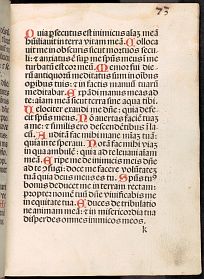 73
Quia persecutus est inimicus aīaȝ meā
hūiliauit in terra vitam meā. Colloca
uit me in obscuris sicut mortuos seculi
: ⁊ anxiatus ē sup me spūs meus in me
turbatū est cor meū. Memor fui die
rū antiquorū meditatus sum in oībus
opibus tuis: ī in factis manuū tuarū
meditabar. Expādi manus meas ad
te: aīa mea sicut terra sine aqua tibi.
Velociter exaudi me dn̄e: quia defe
cit spūs meus. Nō auertas faciē tuaȝ
a me: ⁊ similis ero descendētibus ī la
cū. Auditā fac mihi mane mīaȝ tuā:
quia in te speraui. Notā fac mihi viaȝ
in qua ambulē: quia ad te leuaui aīam
meā. Eripe me de inimicis meis dn̄e
ad te ꝯfugi: doce me facere volūtatē
tuā quia deus meus es tu. Spūs tuꝰ
bonus deducet me in terram rectam:
propter nomē tuū dn̄e viuificabis me
in equitate tua. Educes de tribulatio
ne animam meā: ⁊ in misericordia tua
disperdes omnes inimicos meos.
k